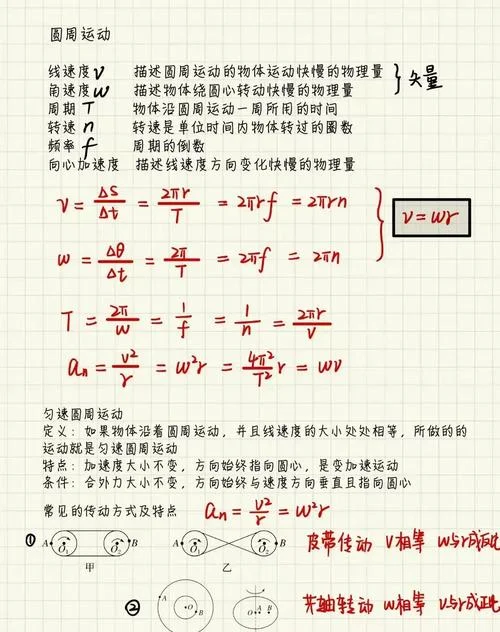 圆周运动
线速度 v 描述圆周运动的物体运动快慢的物理量
角速度 w 描述物体绕圆心转动快慢的物理量 } 矢量
周期 T 物体沿圆周运动一周所用的时间
转速 n 转速是单位时间内物体转过的圈数
频率 f 周期的倒数
向心加速度 描述线速度方向变化快慢的物理量
v = Δs/Δt = 2πr/T = 2πrf = 2πrn
v = wr
w = Δθ/Δt = 2π/T = 2πf = 2πn
T = 2π/w = 1/f = 1/n = 2πr/v
an = v²/r = w²r = 4π²/T² r = wv
匀速圆周运动
定义：如果物体沿着圆周运动，并且线速度的大小处处相等，所做的的
运动就是匀速圆周运动
特点：加速度大小不变，方向始终指向圆心，是变加速运动
条件：合外力大小不变，方向始终与速度方向垂直且指向圆心
常见的传动方式及特点 an = v²/r = w²r
① A O₁ O₂ B A O₁ O₂ B 皮带传动 v相等 w与r成反比
甲 乙
② A O B O A B 共轴转动 w相等 v与r成正比